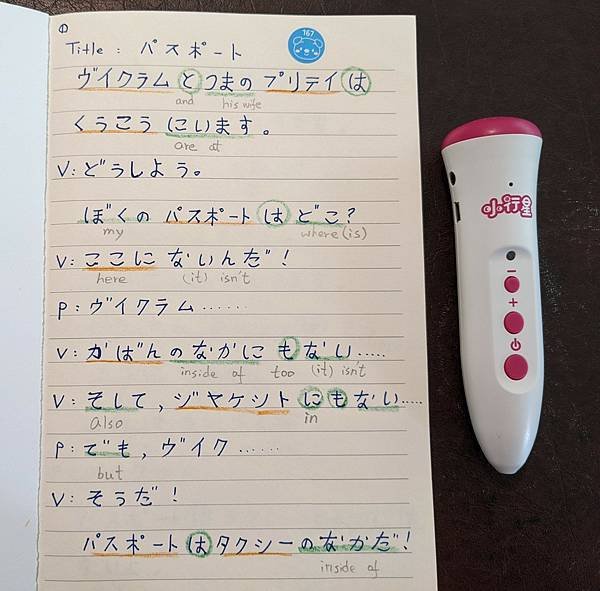 ①
167
Title : パスポート
ヴィクラム と つまの プリテイ は
and his wife
くうこう にいます。
are at
V: どうしよう。
ぼくの パスポート は どこ?
my where (is)
V: ここに ないんだ!
here (it) isn't
P: ヴィクラム……
V: かばん のなかに も ない…..
inside of too (it) isn't
V: そして, ジャケット に も ない…..
also in
P: でも, ヴィク……
but
V: そうだ!
パスポート は タクシー のなかだ!
inside of
小行星
－
+